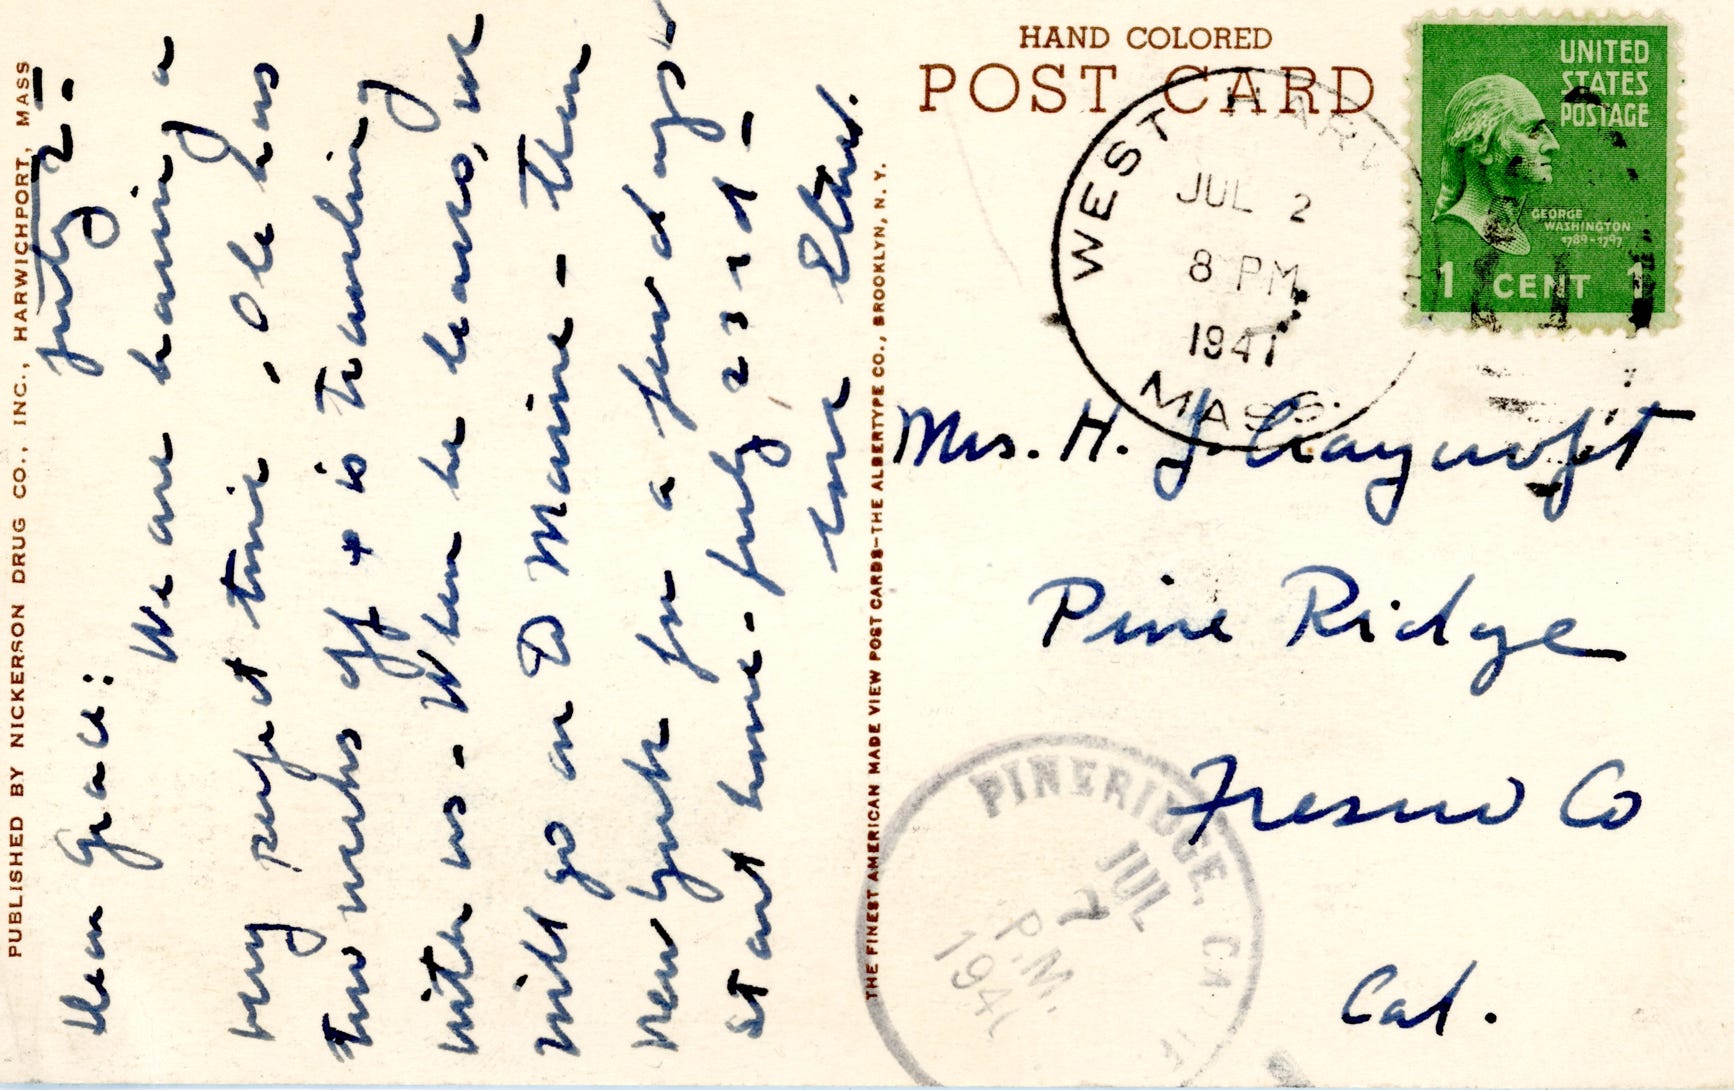 PUBLISHED BY NICKERSON DRUG CO., INC., HARWICHPORT, MASS
July 2 -
Dear Grace:
We are having a
very perfect time, Ole has
two weeks off + is traveling
with us - When he leaves, we
will go on to Maine - then
New York for a few days &
start home - July 23rd -
Love
THE FINEST AMERICAN MADE VIEW POST CARDS-THE ALBERTYPE CO., BROOKLYN, N. Y.
HAND COLORED
POST CARD
WEST HARW
JUL 2
8 PM
1941
MASS.
UNITED
STATES
POSTAGE
GEORGE
WASHINGTON
1789-1797
1 CENT 1
Mrs. H. J. Craycroft
Pine Ridge
Fresno Co
Cal.
PINERIDGE, CA
JUL
7
P.M.
1941